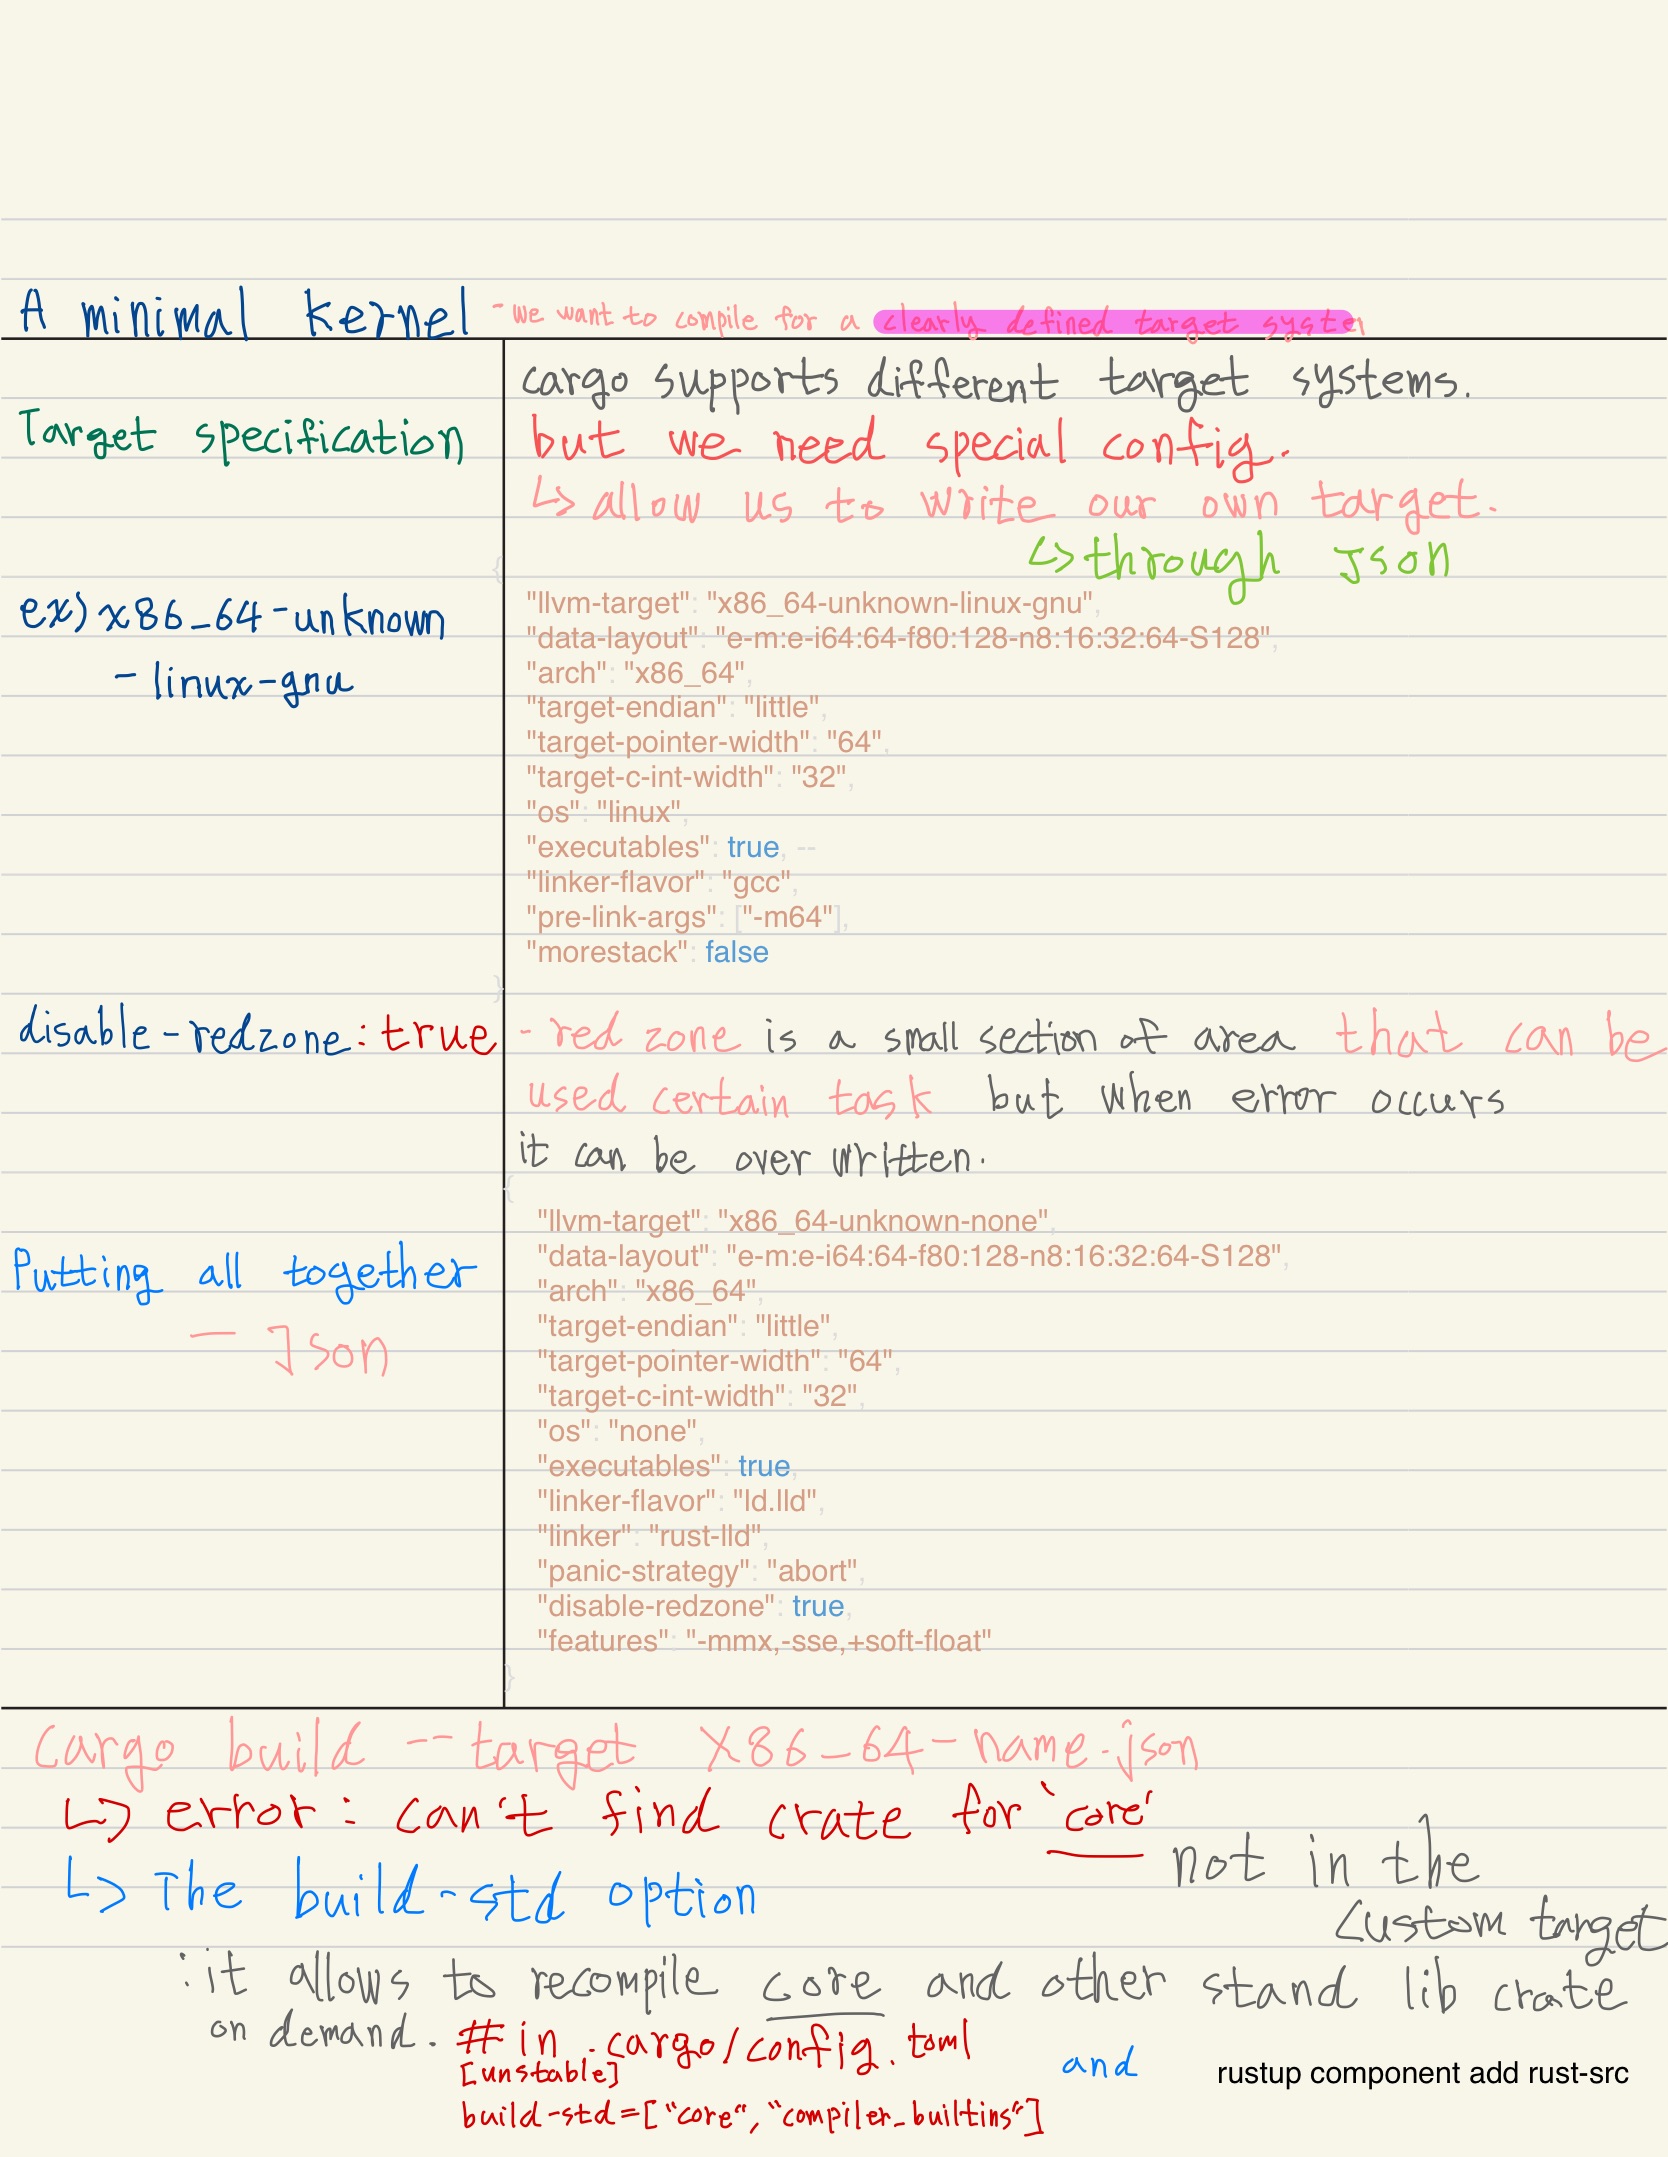 A minimal kernel - we want to compile for a clearly defined target system
cargo supports different target systems.
Target specification
but we need special config.
↳ allow us to write our own target.
↳ through Json
{
ex) x86_64-unknown
-linux-gnu
"llvm-target": "x86_64-unknown-linux-gnu",
"data-layout": "e-m:e-i64:64-f80:128-n8:16:32:64-S128",
"arch": "x86_64",
"target-endian": "little",
"target-pointer-width": "64",
"target-c-int-width": "32",
"os": "linux",
"executables": true, --
"linker-flavor": "gcc",
"pre-link-args": ["-m64"],
"morestack": false
}
disable-redzone: true
- red zone is a small section of area that can be
used certain task but when error occurs
it can be over written.
Putting all together
- Json
{
"llvm-target": "x86_64-unknown-none",
"data-layout": "e-m:e-i64:64-f80:128-n8:16:32:64-S128",
"arch": "x86_64",
"target-endian": "little",
"target-pointer-width": "64",
"target-c-int-width": "32",
"os": "none",
"executables": true,
"linker-flavor": "ld.lld",
"linker": "rust-lld",
"panic-strategy": "abort",
"disable-redzone": true,
"features": "-mmx,-sse,+soft-float"
}
Cargo build --target X86_64-name.json
↳ error: can't find crate for 'core'
not in the
custom target
↳ The build-std option
: it allows to recompile core and other stand lib crate
on demand. # in .cargo/config.toml
[unstable]
build-std=["core", "compiler_builtins"]
and rustup component add rust-src